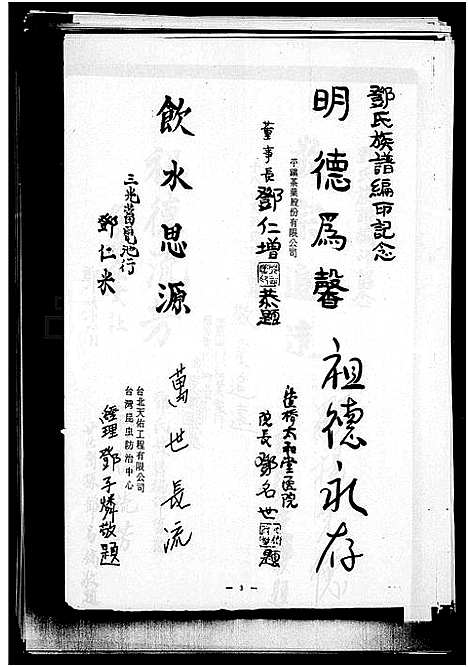 鄧氏族譜編印記念
明德為馨
平鎮茶業股份有限公司
董事長鄧仁增恭題
祖德永存
板橋太和堂醫院
院長鄧名世題
飲水思源
三光蓄電池行
鄧仁米
萬世長流
台北天佑工程有限公司
台灣昆虫防治中心
經理鄧子燐敬題
— 3 —